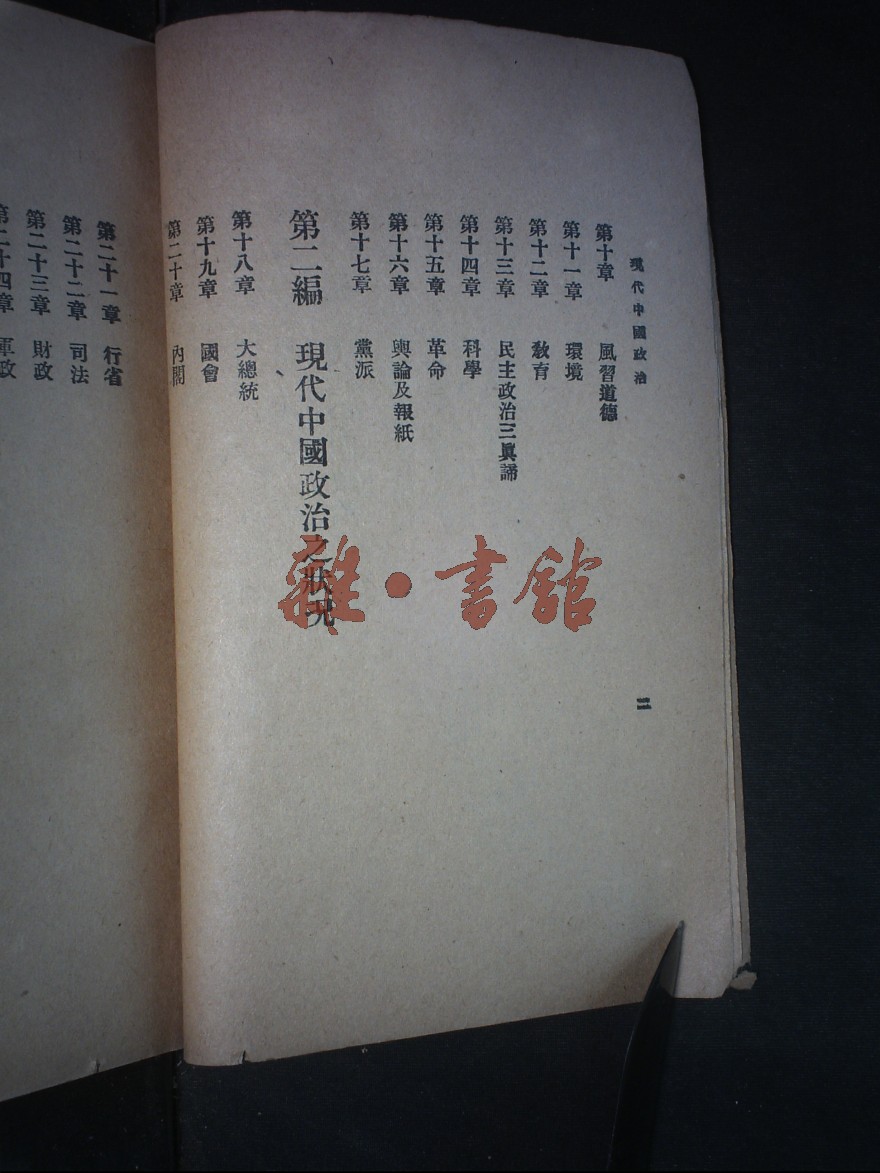 現代中國政治
第十章　風習道德
第十一章　環境
第十二章　教育
第十三章　民主政治三眞諦
第十四章　科學
第十五章　革命
第十六章　輿論及報紙
第十七章　黨派
第二編　現代中國政治之狀况
第十八章　大總統
第十九章　國會
第二十章　內閣
二
第二十一章　行省
第二十二章　司法
第二十三章　財政
第二十四章　軍政
雜·書館